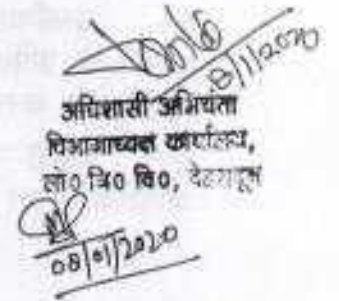 8/1/2020
अधिशासी अभियंता
विभागाध्यक्ष कार्यालय,
लो० नि० वि०, देहरादून
08/01/2020